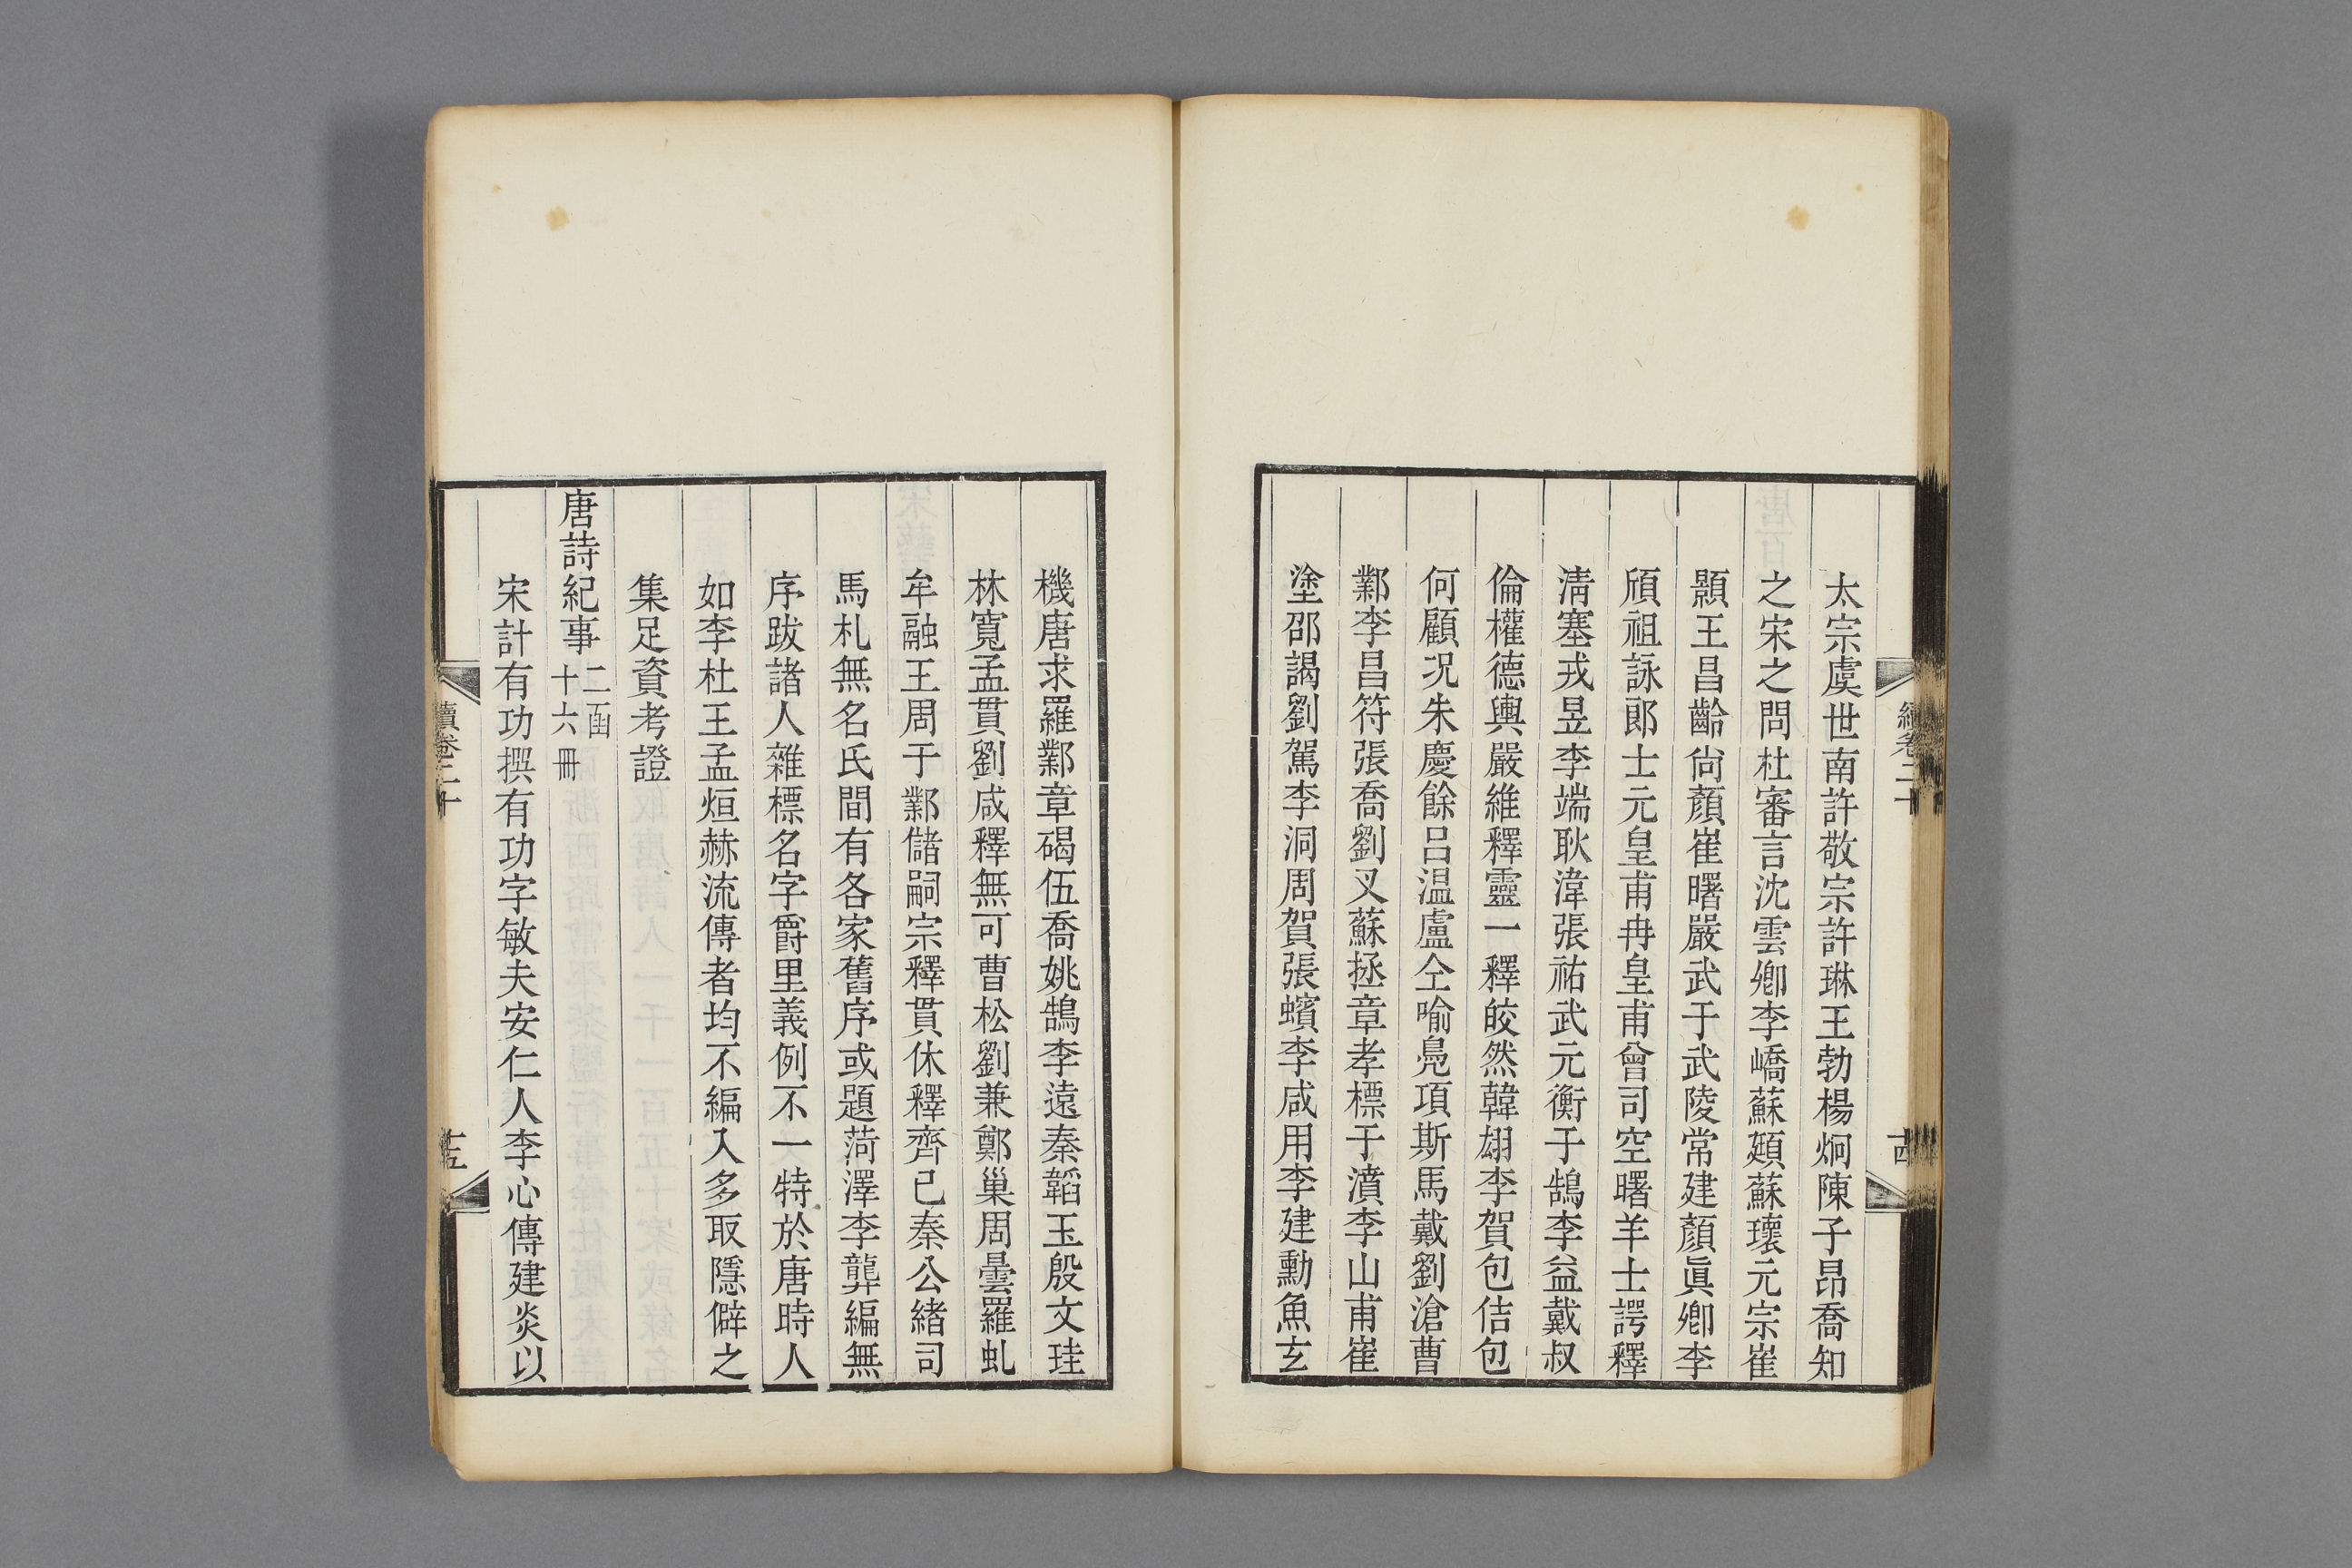 太宗虞世南許敬宗許琳王勃楊炯陳子昂喬知
之宋之問杜審言沈雲卿李嶠蘇頲蘇瓌元宗崔
顥王昌齡尚顏崔曙嚴武于武陵常建顏眞卿李
頎祖詠郞士元皇甫冉皇甫曾司空曙羊士諤釋
淸塞戎昱李端耿湋張祐武元衡于鵠李益戴叔
倫權德輿嚴維釋靈一釋皎然韓翃李賀包佶包
何顧况朱慶餘呂温盧仝喻鳧項斯馬戴劉滄曹
鄴李昌符張喬劉叉蘇拯章孝標于濆李山甫崔
塗邵謁劉駕李洞周賀張蠙李咸用李建勳魚玄
續卷二十
十四
機唐求羅鄴章碣伍喬姚鵠李遠秦韜玉殷文珪
林寬孟貫劉咸釋無可曹松劉兼鄭巢周曇羅虬
牟融王周于鄴儲嗣宗釋貫休釋齊己秦公緒司
馬札無名氏間有各家舊序或題菏澤李龏編無
序跋諸人雜標名字爵里義例不一特於唐時人
如李杜王孟烜赫流傳者均不編入多取隱僻之
集足資考證
唐詩紀事二函十六冊
宋計有功撰有功字敏夫安仁人李心傳建炎以
續卷二十
十五